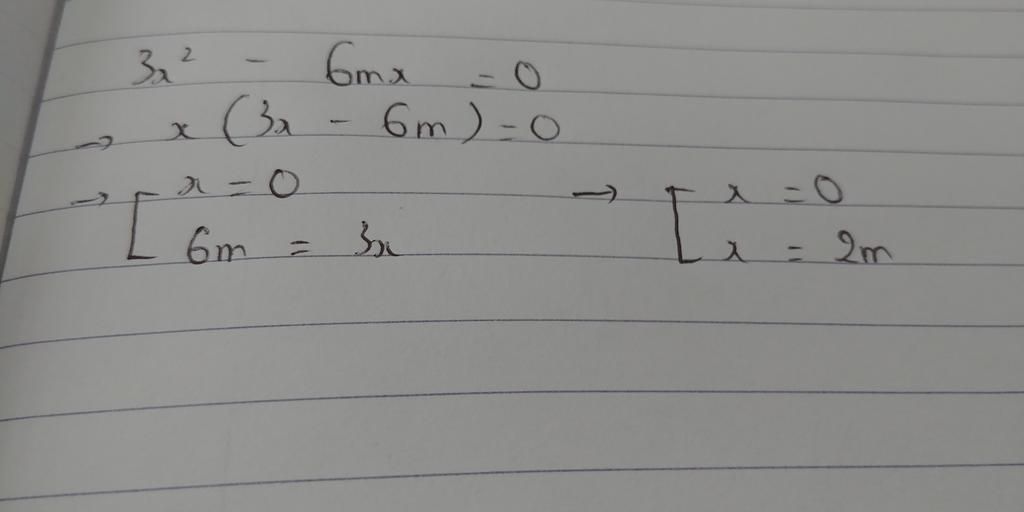 3x² - 6mx = 0
→ x (3x - 6m) = 0
→ [ x = 0 → [ x = 0
6m = 3x x = 2m